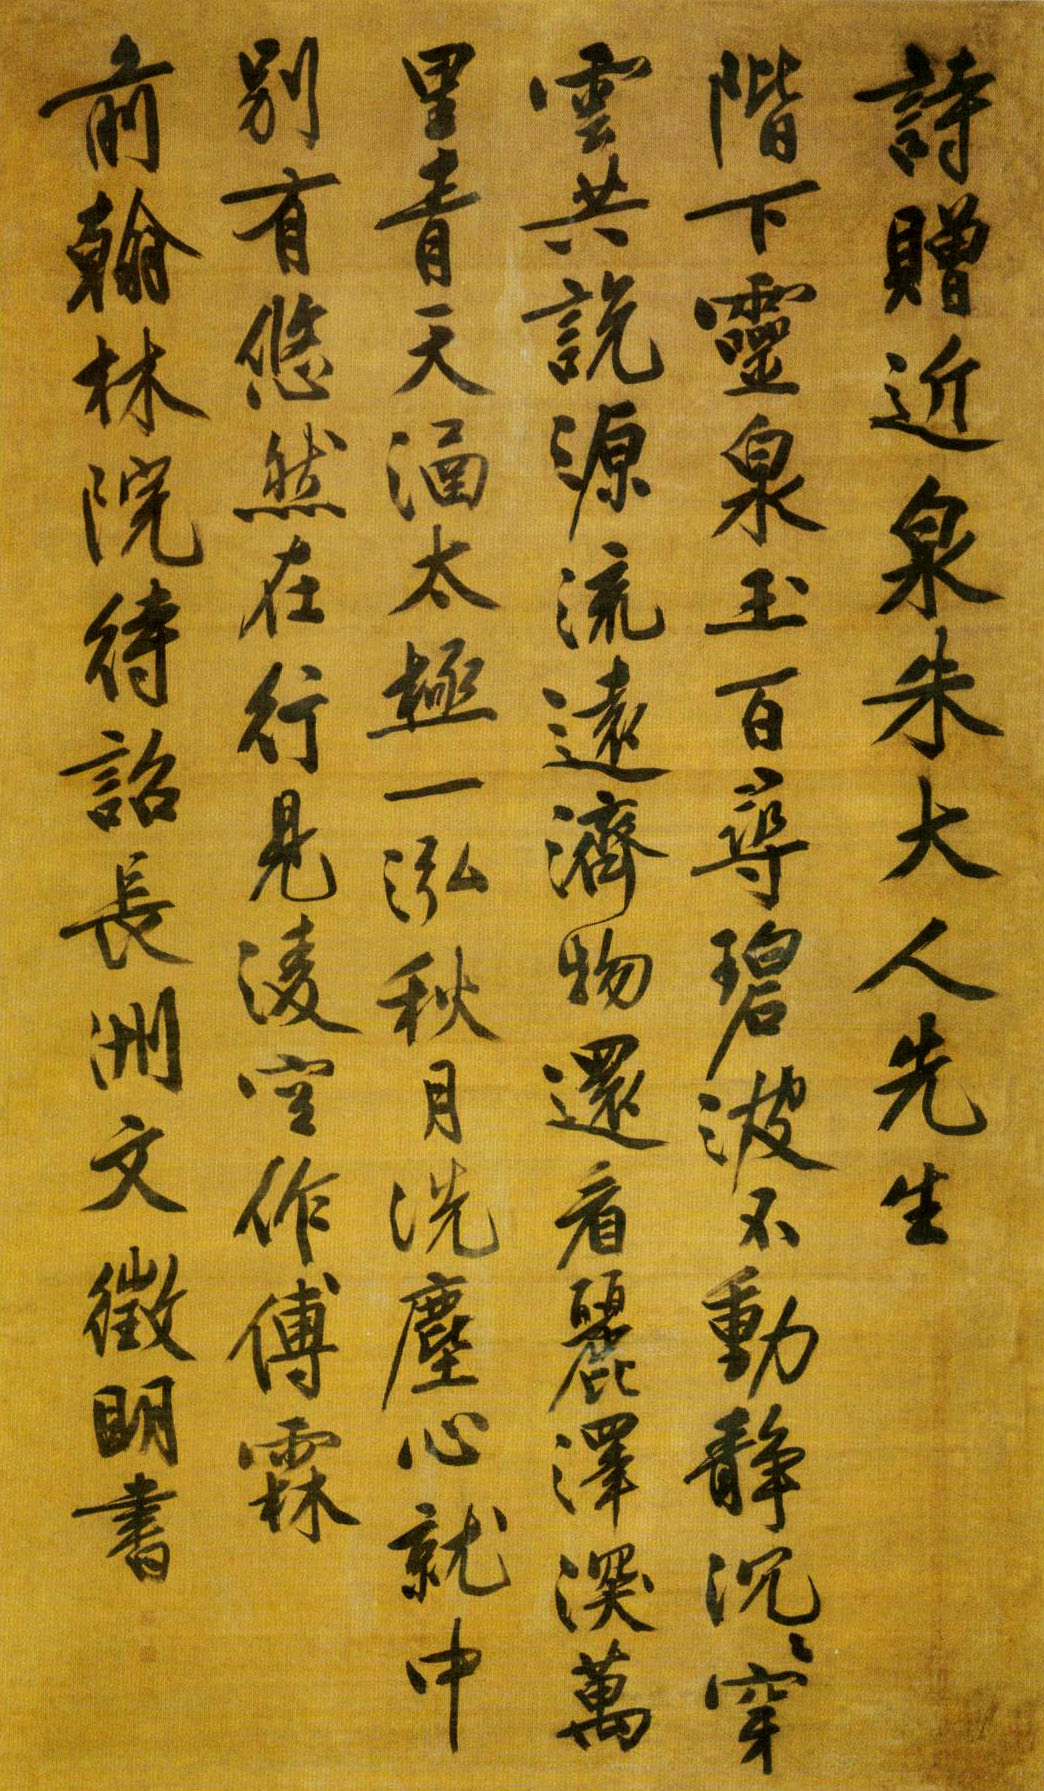 詩贈近泉朱大人先生
階下靈泉玉百尋碧波不動靜沉〻穿
雲共説源流遠濟物還看麗澤深萬
里青天涵太極一泓秋月洗塵心就中
別有悠然在行見淩空作傅霖
前翰林院待詔長洲文徵明書